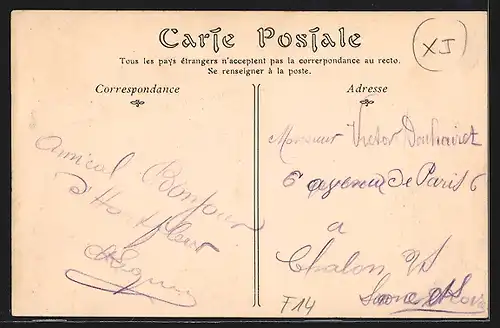 Carte Postale
Tous les pays étrangers n'acceptent pas la correrpondance au recto.
Se renseigner à la poste.
Correspondance
Adresse
XI
Amical Bonjour
d'Honfleur
Monsieur Victor
6 avenue de Paris 6
a
Chalon S/S
Saone et Loire
F14